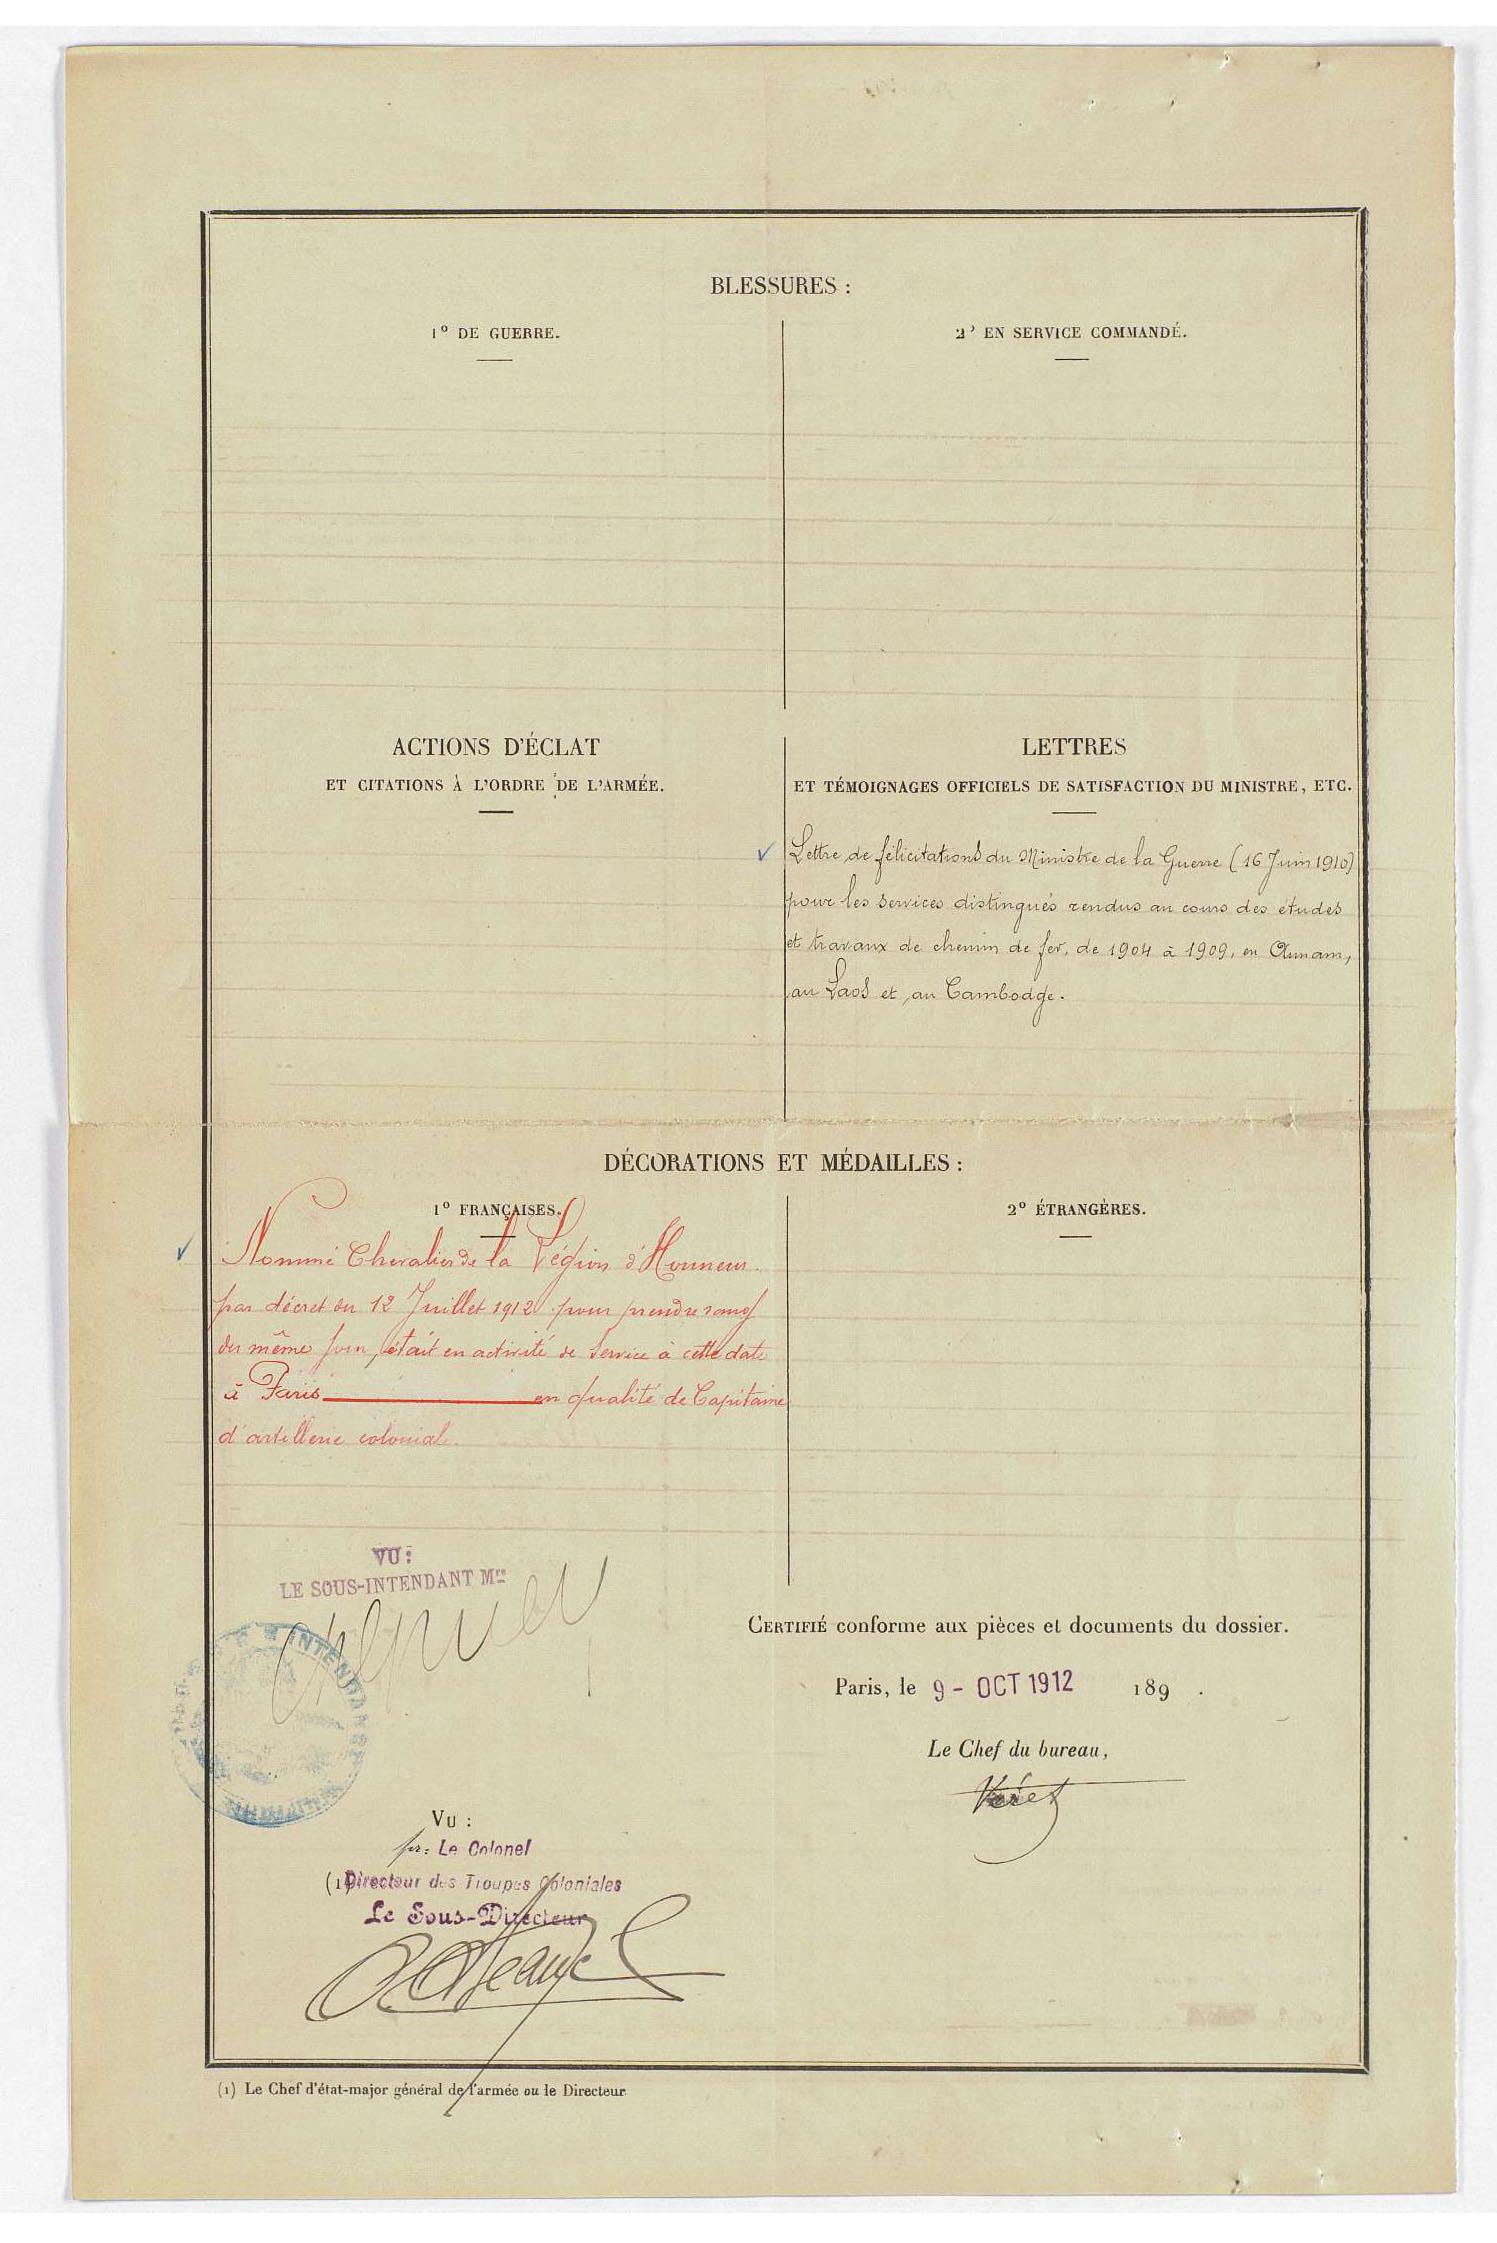 BLESSURES :
1º DE GUERRE.
2º EN SERVICE COMMANDÉ.
ACTIONS D'ÉCLAT
ET CITATIONS À L'ORDRE DE L'ARMÉE.
LETTRES
ET TÉMOIGNAGES OFFICIELS DE SATISFACTION DU MINISTRE, ETC.
Lettre de félicitations du Ministre de la Guerre (16 Juin 1910)
pour les services distingués rendus au cours des études
et travaux de chemin de fer, de 1904 à 1909, en Annam,
au Laos et au Cambodge.
DÉCORATIONS ET MÉDAILLES :
1º FRANÇAISES.
Nommé Chevalier de la Légion d'Honneur
par décret du 12 Juillet 1912 pour prendre rang
du même jour, était en activité de Service à cette date
à Paris en qualité de Capitaine
d'artillerie colonial
2º ÉTRANGÈRES.
VU :
LE SOUS-INTENDANT Mre
INTENDANCE
CERTIFIÉ conforme aux pièces et documents du dossier.
Paris, le 9 - OCT 1912 189 .
Le Chef du bureau,
Véret
VU :
pr: Le Colonel
(1) Directeur des Troupes Coloniales
Le Sous-Directeur
(1) Le Chef d'état-major général de l'armée ou le Directeur.